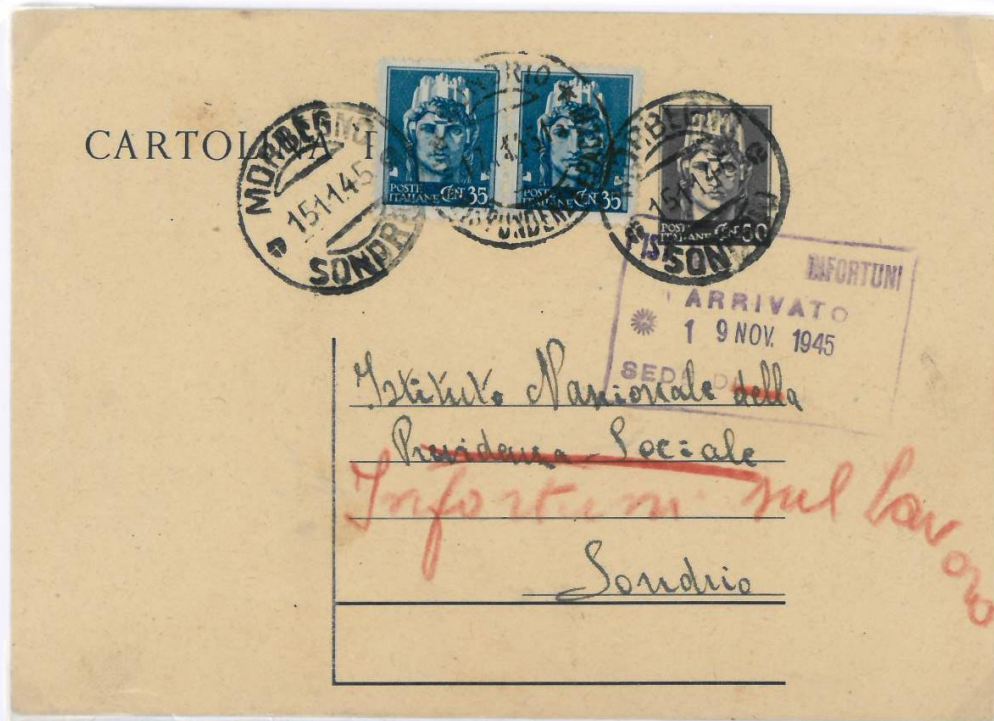 CARTOLINA
MORBEGNO
15.11.45
SONDRIO
POSTE ITALIANE CENT 35
POSTE ITALIANE CENT 35
MORBEGNO
15.11.45
POSTE ITALIANE CENT 50
INFORTUNI
ARRIVATO
19 NOV. 1945
SEDE DI
Istituto Nazionale della
Previdenza Sociale
Infortuni sul Lavoro
Sondrio